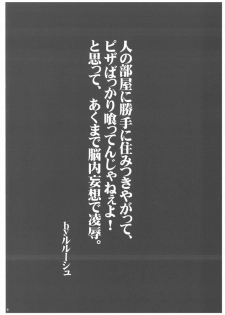 人の部屋に勝手に住みつきやがって、
ピザばっかり喰ってんじゃねぇよ!
と思って、あくまで脳内妄想で凌辱。
byルルーシュ